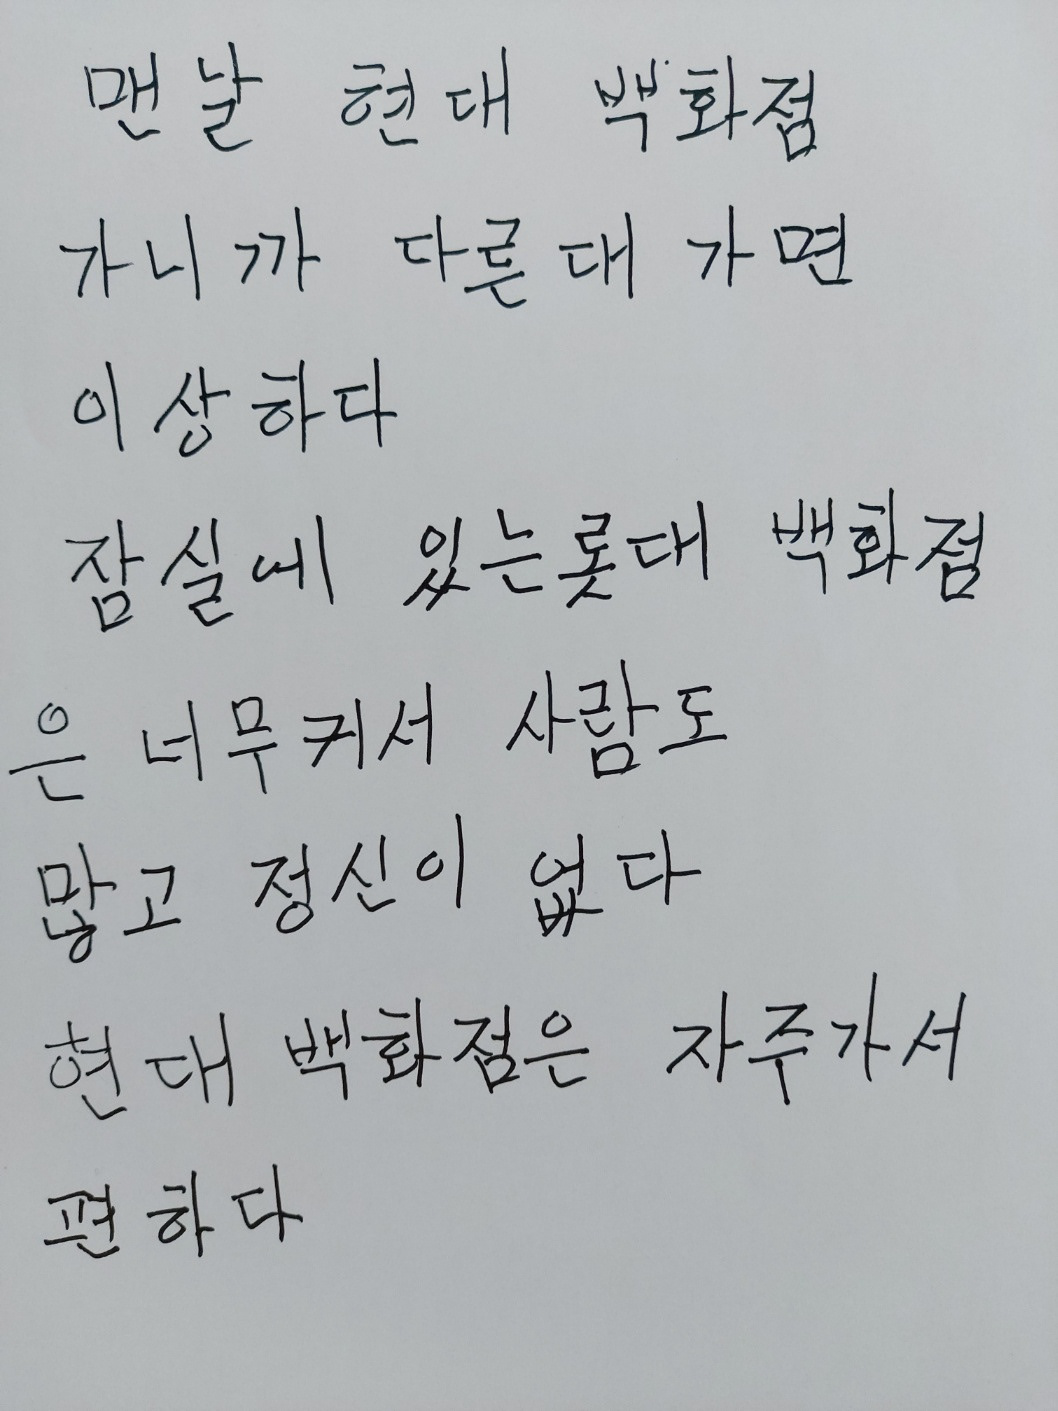 맨날 현대 백화점
가니까 다른대 가면
이상하다
잠실에 있는롯대 백화점
은 너무커서 사람도
많고 정신이 없다
현대 백화점은 자주가서
편하다